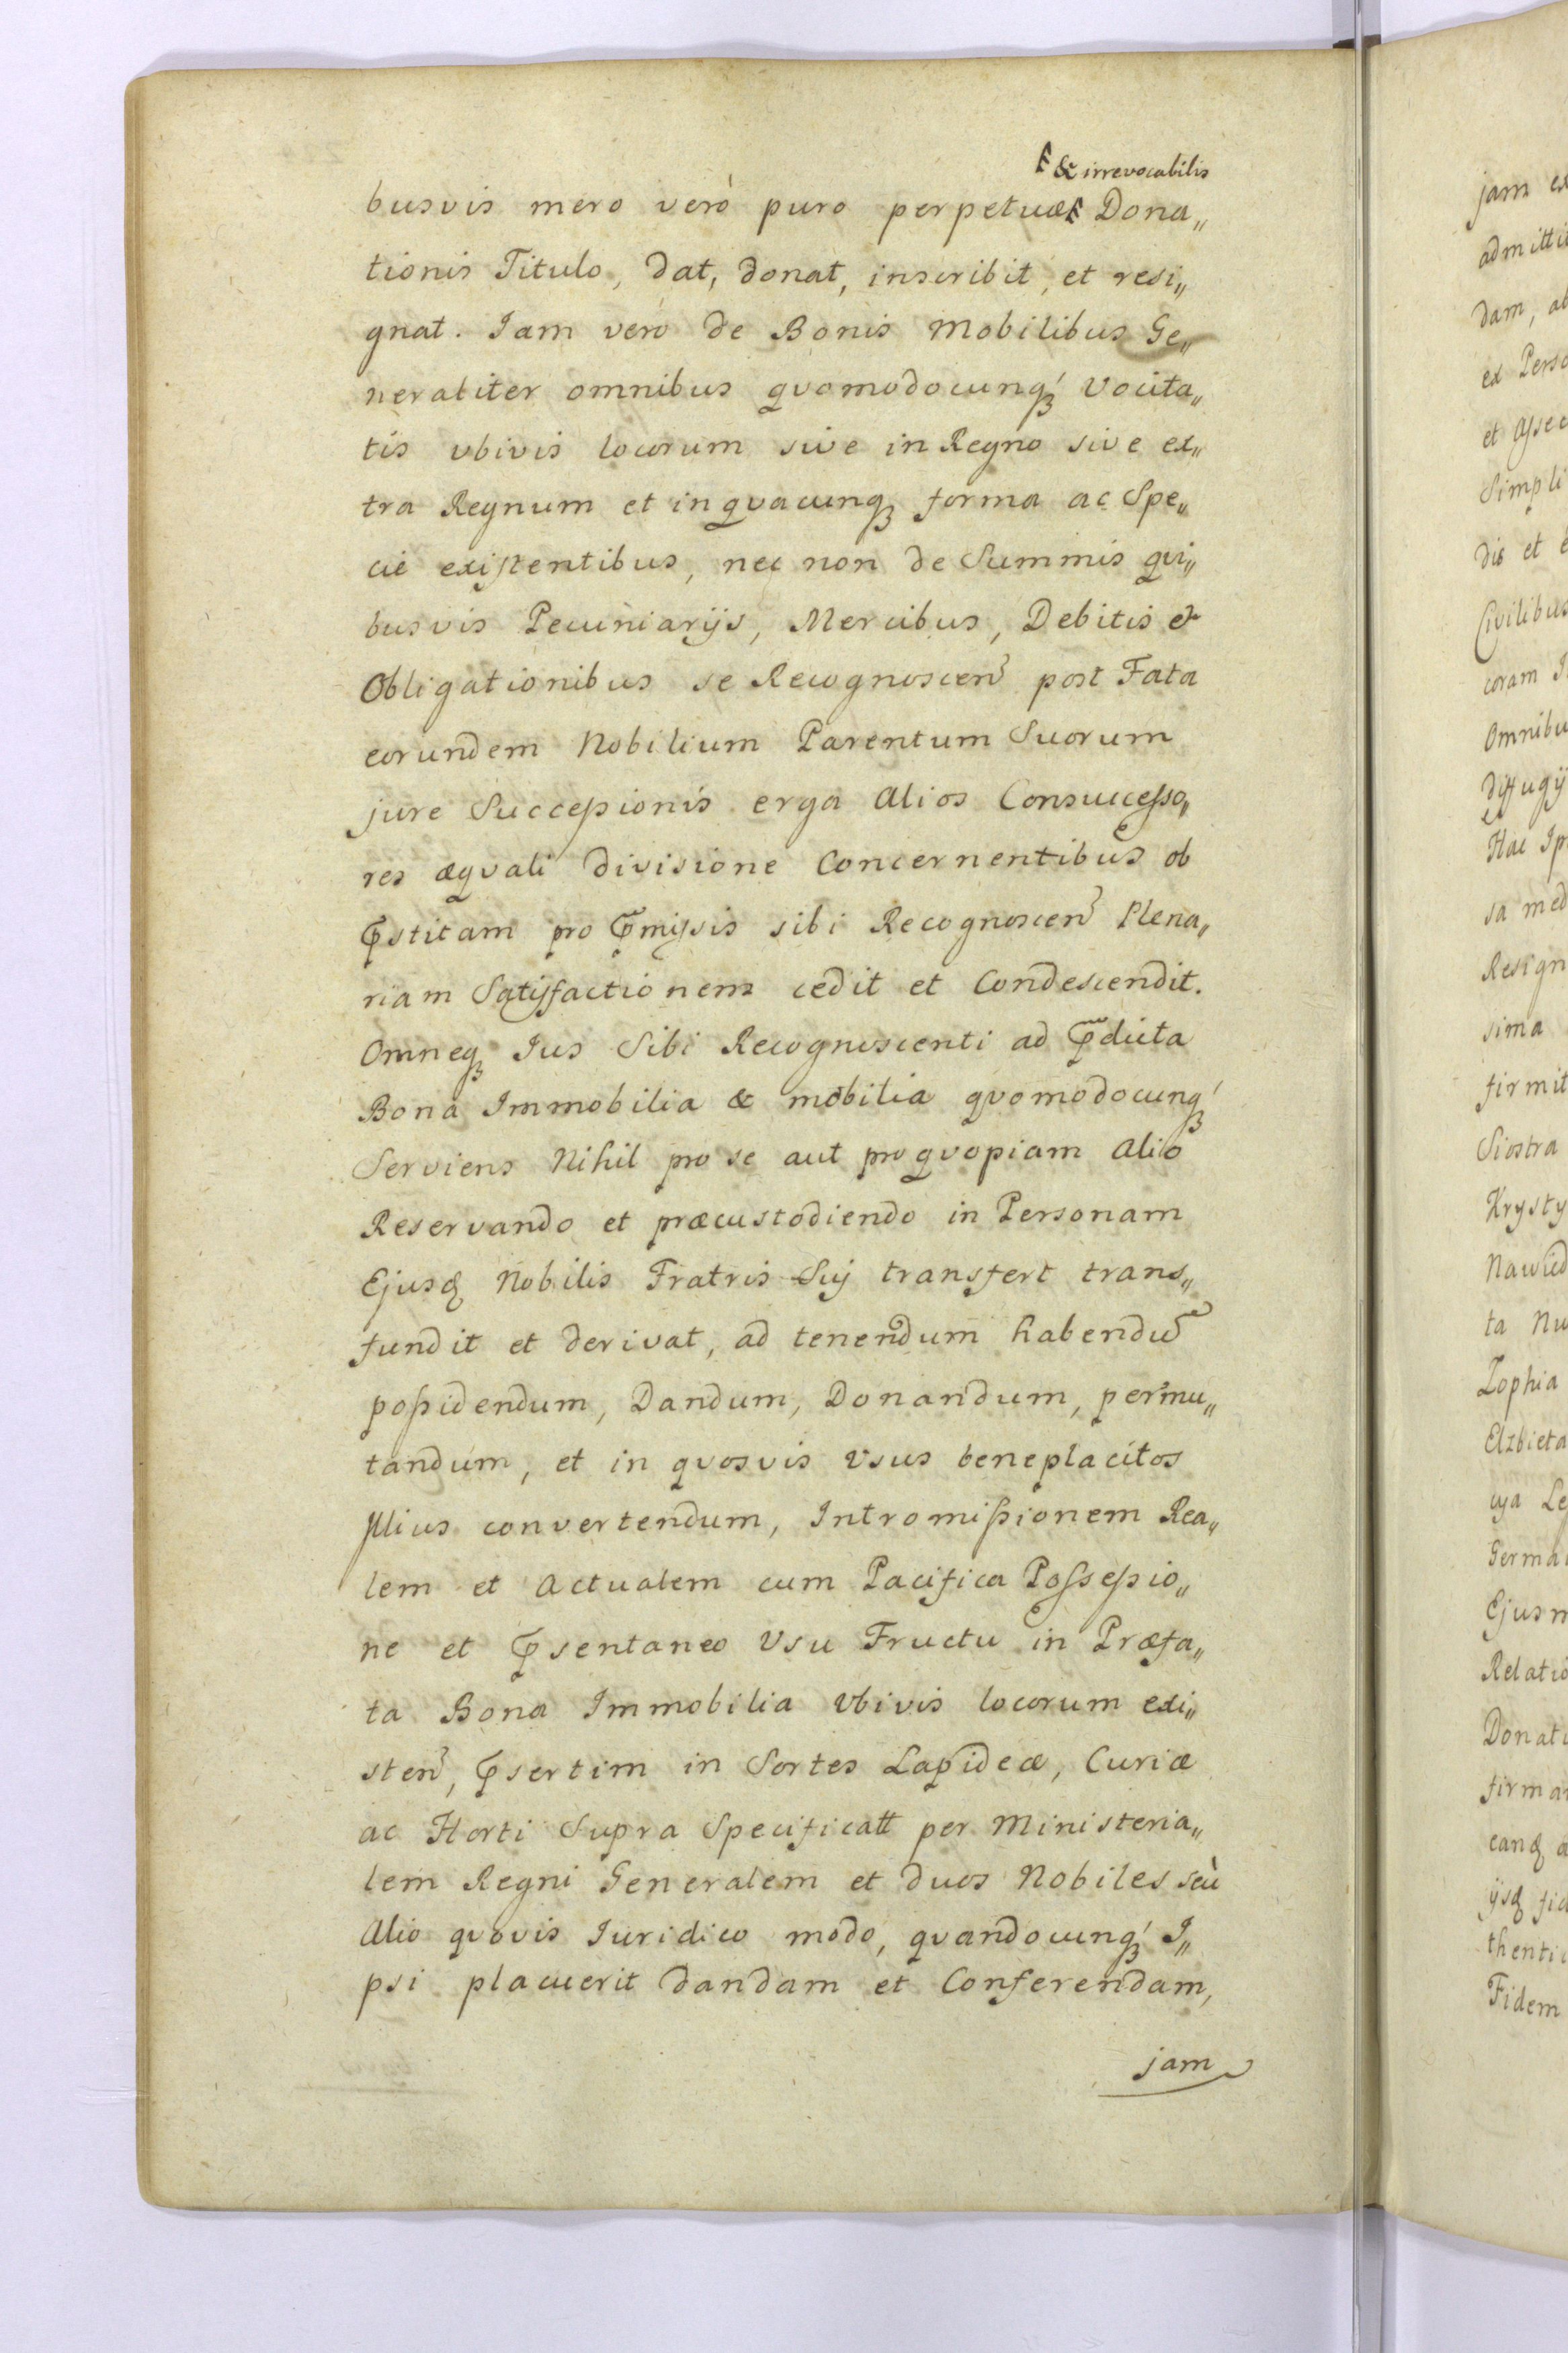 & irrevocabilis
busvis mero verò puro perpetuæ Dona„
tionis Titulo, dat, donat, inscribit, et resi„
gnat. Iam verò de Bonis Mobilibus Ge„
neraliter omnibus qvomodocunqꝫ Vocita„
tis vbivis locorum sive in Regno sive ex„
tra Regnum et in qvacunqꝫ forma ac Spe„
cie existentibus, nec non de Summis qvi„
busvis Pecuniarijs, Mercibus, Debitis et
Obligationibus se Recognoscen̄ post Fata
eorundem Nobilium Parentum Suorum
jure Successionis erga Alios Consuccesso„
res æqvali divisione Concernentibus ob
p̄stitam pro p̄missis sibi Recognoscen̄ Plena„
riam Satisfactionem cedit et Condescendit.
Omneqꝫ Ius Sibi Recognoscenti ad p̄dicta
Bona Immobilia & mobilia qvomodocunqꝫ
Serviens Nihil pro se aut pro qvopiam Alio
Reservando et præcustodiendo in Personam
Ejusd Nobilis Fratris Sui transfert trans„
fundit et derivat, ad tenendum habendū
possidendum, Dandum, Donandum, permu„
tandum, et in qvosvis Vsus beneplacitos
Illius convertendum, Intromissionem Rea„
lem et Actualem cum Pacifica Possessio„
ne et p̄sentaneo Vsu Fructu in Præfa„
ta Bona Immobilia Vbivis locorum exi„
sten̄, p̄sertim in Sortes Lapideæ, Curiæ
ac Horti Supra Specificatt per Ministeria„
lem Regni Generalem et duos Nobiles seù
Alio qvovis Iuridico modo, qvandocunqꝫ I„
psi placuerit dandam et Conferendam,
jam
jam
dam,
et
Simpli
dis et
Civilibus
coram
Omnibu
diffugij
Hac
sa med
Resign
sima
firmit
Siostra
Krysty
ta
Zophia
Elzbieta
Germa
Relatio
Donati
firma
thenti
Fidem